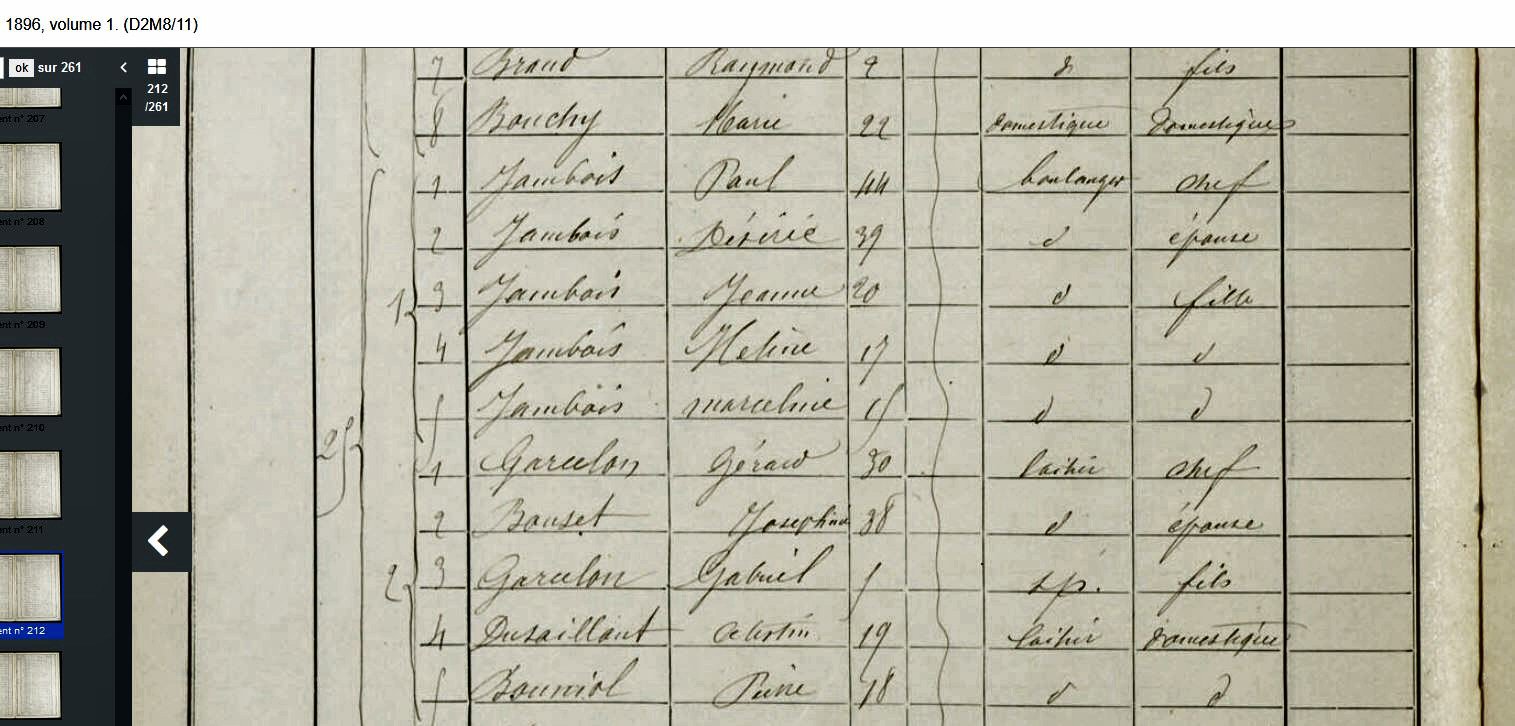 1896, volume 1. (D2M8/11)
ok sur 261
212
/261
ent n° 207
ent n° 208
ent n° 209
ent n° 210
ent n° 211
ent n° 212
7 Braud Raymond 9 d fils
8 Bouchy Marie 22 domestique domestique
25
1
1 Jambois Paul 44 boulanger chef
2 Jambois Désirée 39 d épouse
3 Jambois Jeanne 20 d fille
4 Jambois 17 d d
5 Jambois marceline 15 d d
2
1 Garcelon Gérard 30 laitier chef
2 Bouset Josephine 38 d épouse
3 Garcelon Gabriel s.p. fils
4 Dusaillant Célestin 19 laitier domestique
5 Bouniol Pierre 18 d d